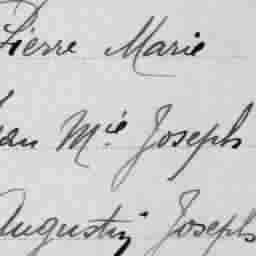 Pierre Marie
Jean M.ie Joseph
Augustin Joseph